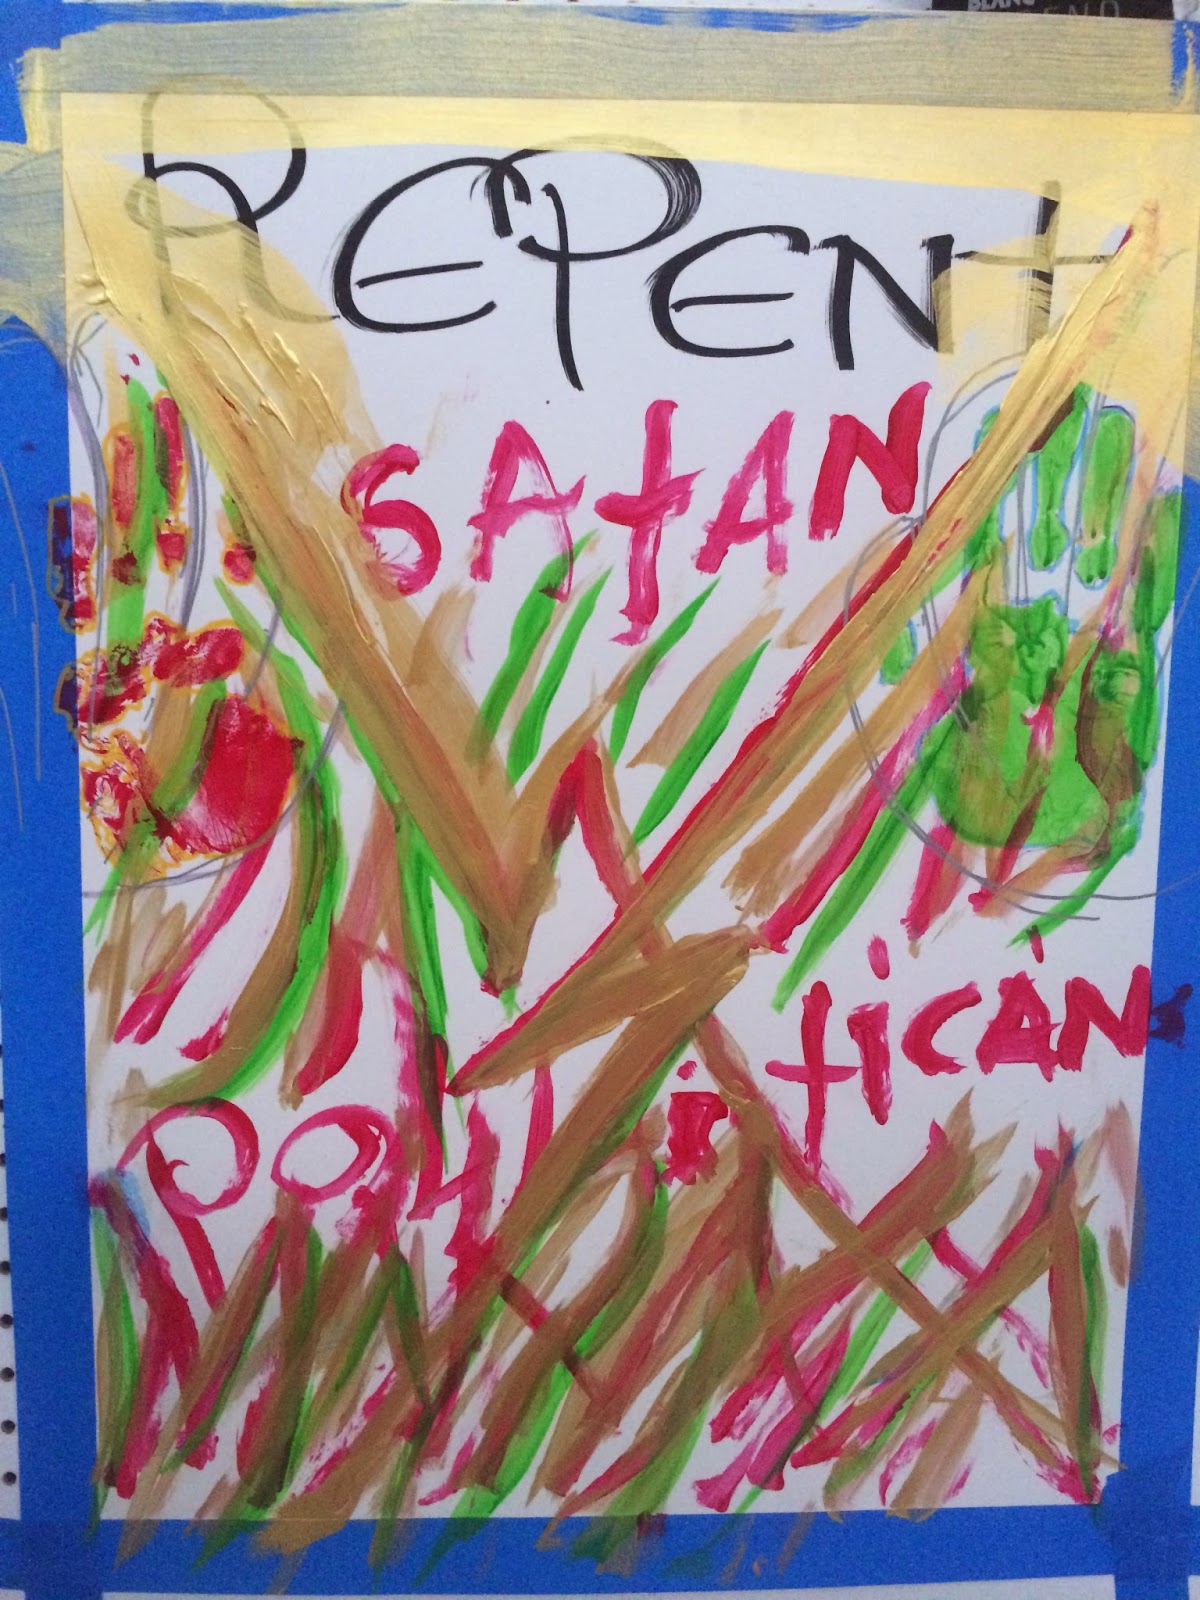 REPENT
SATAN
POLiTiCAN